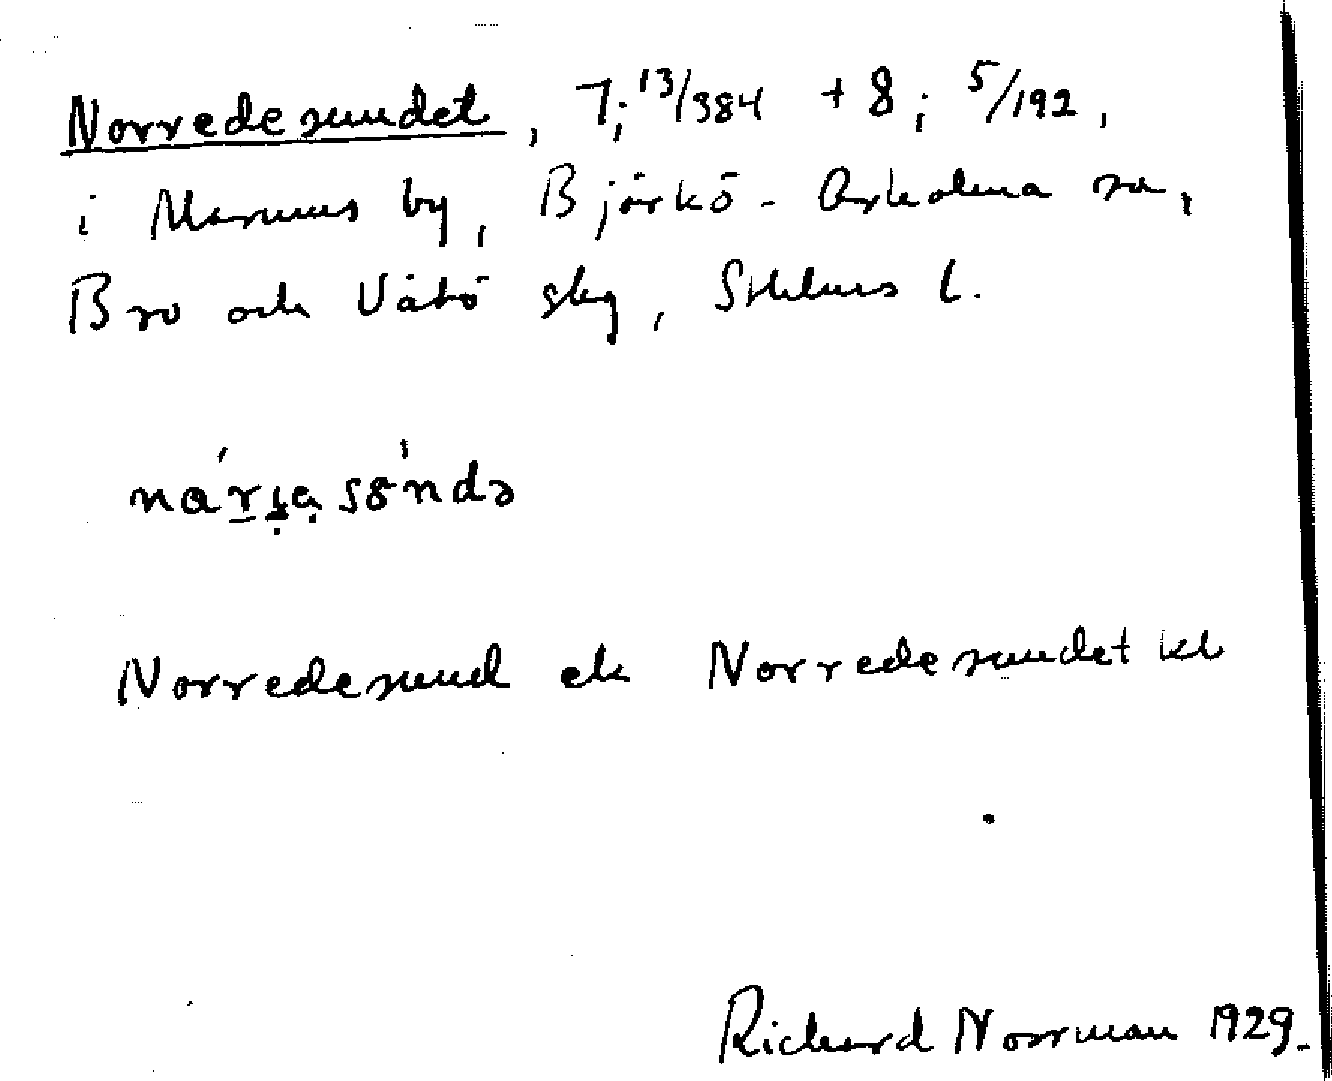 Norredesundet, 7; 13/384 + 8; 5/192,
i Marums by, Björkö-Arholma sn,
Bro och Vätö skg, Sthlms l.
Norredesund ek Norredesundet kl
Richard Norrman 1929.